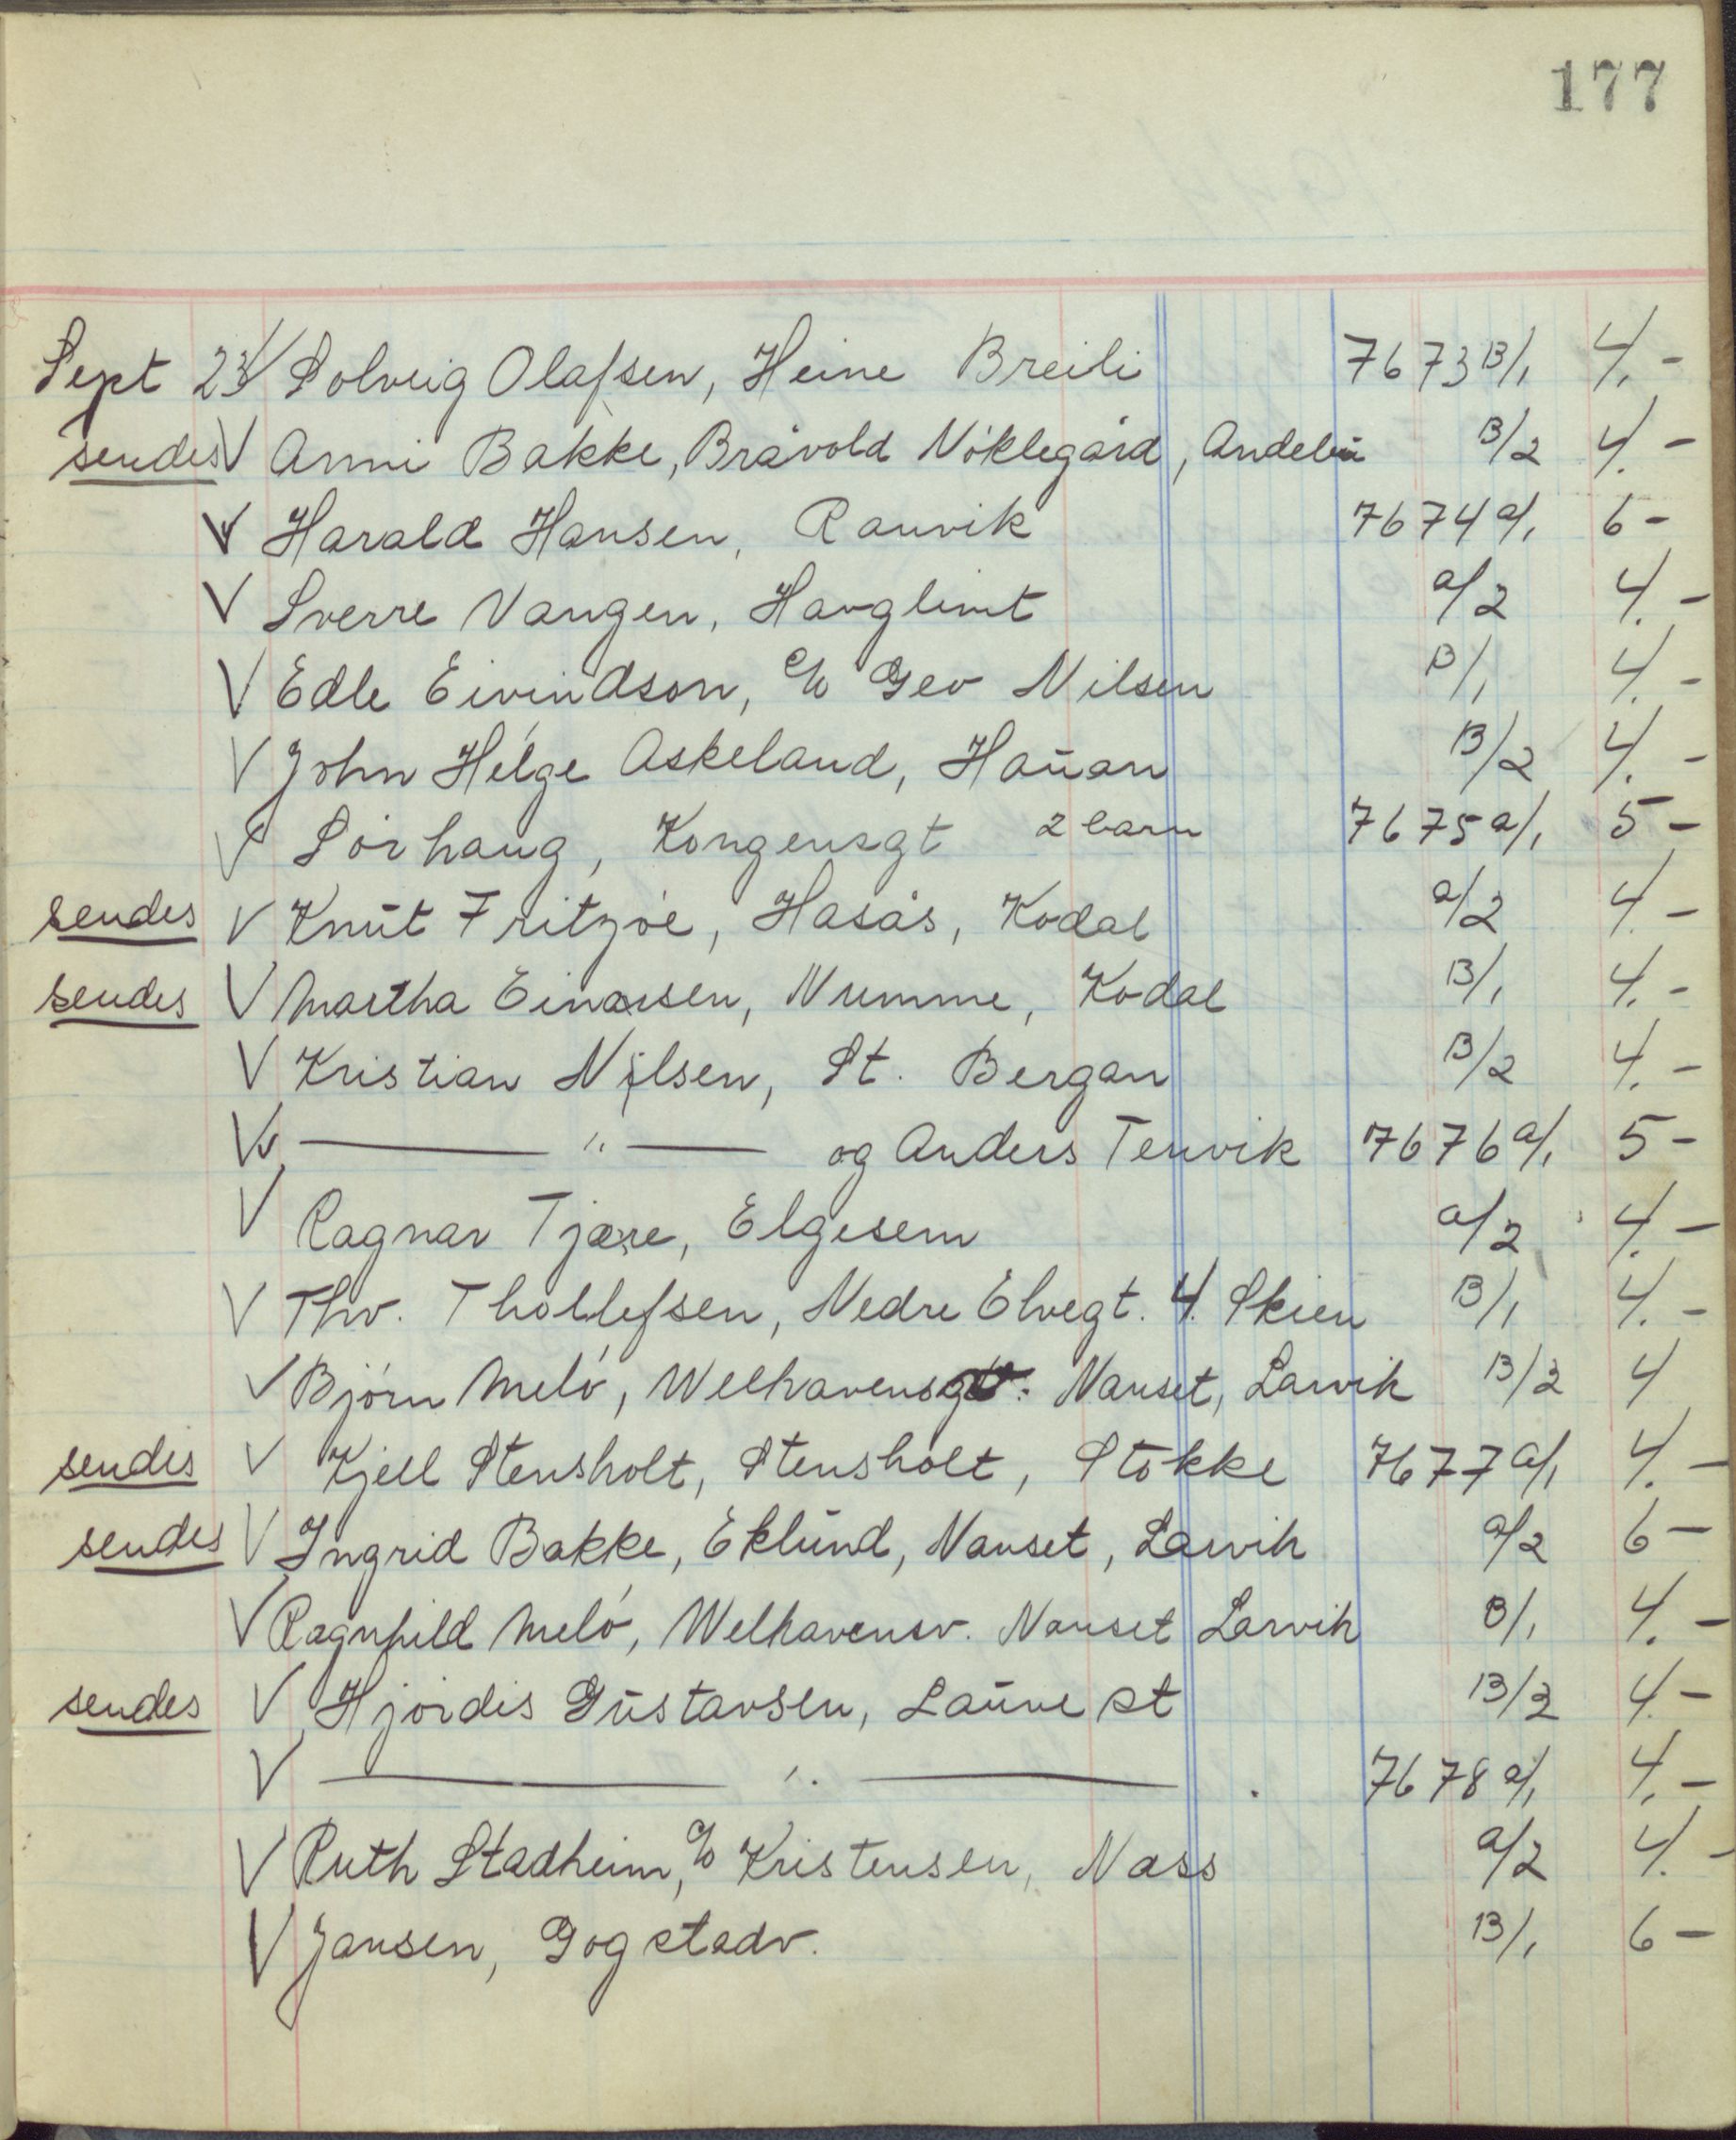 177
Sept 23 √ Solveig Olafsen, Heine Breili 7673 B/1 4.-
sendes √ Anni Bakke, Bråvold Nöklegård, Andebu B/2 4.-
√ Harald Hansen, Ranvik 7674 a/1 6-
√ Sverre Vangen, Havglimt a/2 4.-
√ Edle Eivindson, c/o Geo Nilsen B/1 4.-
√ John Helge Askeland, Haūan B/2 4.-
√ Sörhaug, Kongensgt 2 barn 7675 a/1 5-
sendes √ Knūt Fritzöe, Hasås, Kodal a/2 4.-
sendes √ Martha Einarsen, Numme, Kodal B/1 4.-
√ Kristian Nilsen, St. Bergan B/2 4.-
√ — " — og Anders Tenvik 7676 a/1 5-
√ Ragnar Tjøre, Elgesem a/2 4.-
√ Thv. Thollefsen, Nedre Elvegt. 4. Skien B/1 4.-
√ Björn Melö, Welhavensgt. Nanset, Larvik B/2 4
sendes √ Kjell Stensholt, Stensholt, Stokke 7677 a/1 4.-
sendes √ Ingrid Bakke, Eklūnd, Nanset, Larvik a/2 6-
√ Ragnhild Melö, Welhavensv. Nanset Larvik B/1 4.-
sendes √ Hjördis Gūstavsen, Laūve st B/2 4-
√ — " — . 7678 a/1 4.-
√ Ruth Stadheim, c/o Kristensen, Nass a/2 4.-
√ Jansen, Gogstadv. B/1 6-